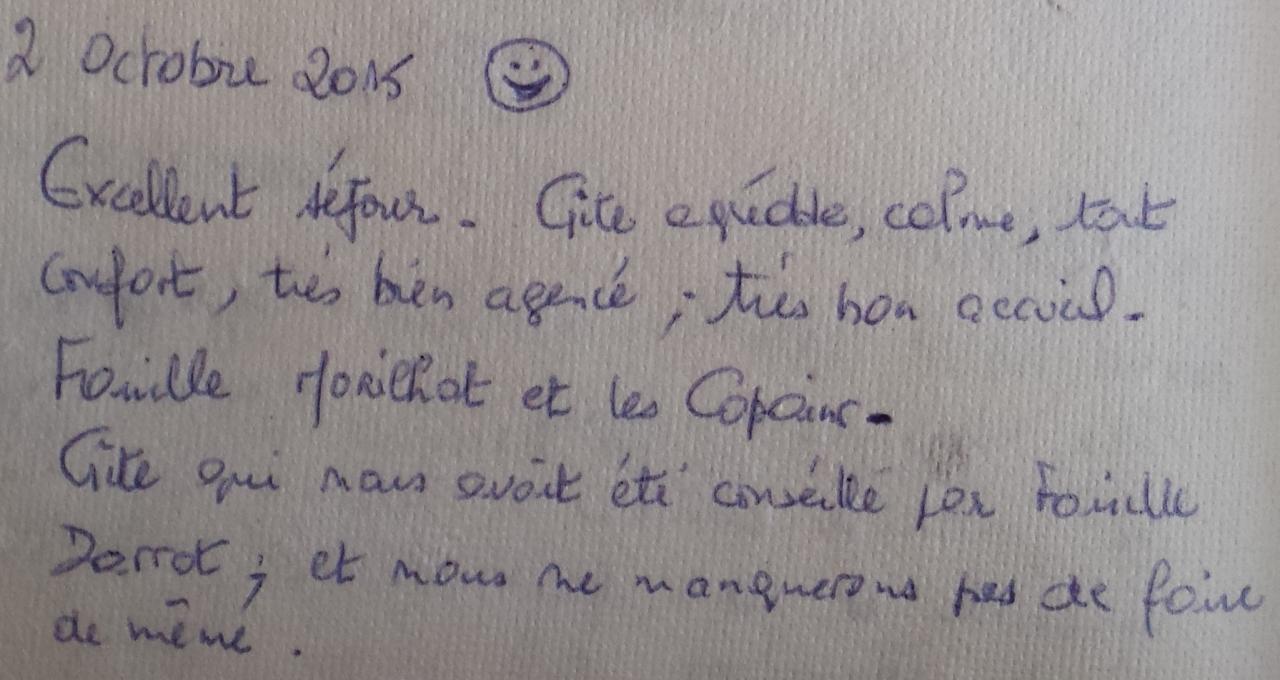 2 Octobre 2015
Excellent séjour. Gîte agréable, calme, tout
confort, très bien agencé ; très bon accueil.
Famille Morilhat et les Copains.
Gîte qui nous avait été conseillé par Famille
Darrot ; et nous ne manquerons pas de faire
de même.